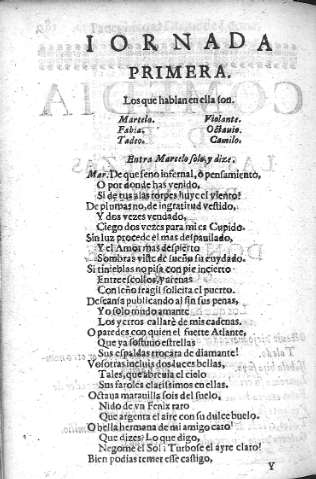 IORNADA
PRIMERA.
Los que hablan en ella son.
Martelo. Violante.
Fabia. Octauio.
Tadeo. Camilo.
Entra Martelo solo, y dize.
Mar. De que seno infernal, ò pensamiento,
O por donde has venido,
Si de tus alas torpes huye el viento!
De plumas no, de ingratitud vestido,
Y dos vezes vendado,
Ciego dos vezes para mi es Cupido.
Sin luz procede el mas despauilado,
Y el Amor mas despierto
Sombras viste de sueño su cuydado.
Si tinieblas no pisa con pie incierto
Entre escollos, y arenas
Con leño fragil solicita el puerto.
Descansa publicando al fin sus penas,
Yo solo mudo amante
Los yerros callarè de mis cadenas.
O paredes con quien el fuerte Atlante,
Que ya sostuuo estrellas
Sus espaldas trocara de diamante!
Vosotras incluis dos luces bellas,
Tales, que abreuia el cielo
Sus faroles clarissimos en ellas.
Octaua marauilla sois del suelo,
Nido de vn Fenix raro
Que argenta el aire con su dulce buelo.
O bella hermana de mi amigo caro!
Que dizes? Lo que digo,
Negome el Sol? Turbose el ayre claro?
Bien podias temer esse castigo,
Y